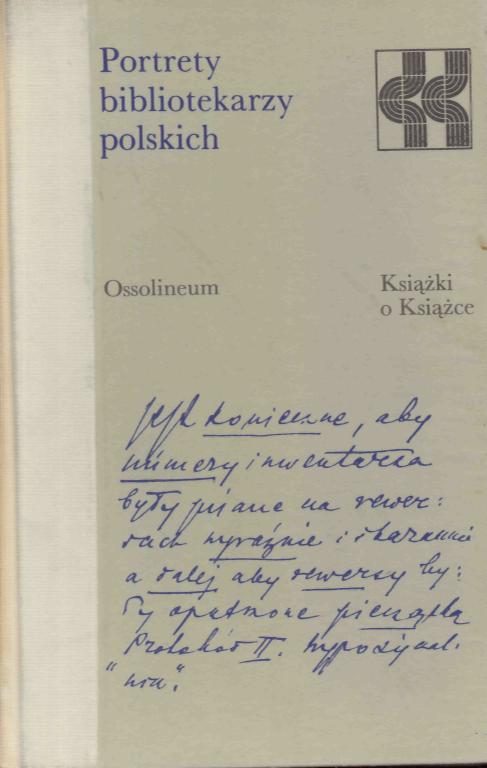 Portrety
bibliotekarzy
polskich
Ossolineum
Książki
o Książce
Jest konieczne, aby
numery inwentarza
były pisane na rewer:
sach wyraźnie i starannie
a dalej aby rewersy by:
ły opatrzone pieczątką
Protokół II. Wypożyczal:
"nia".